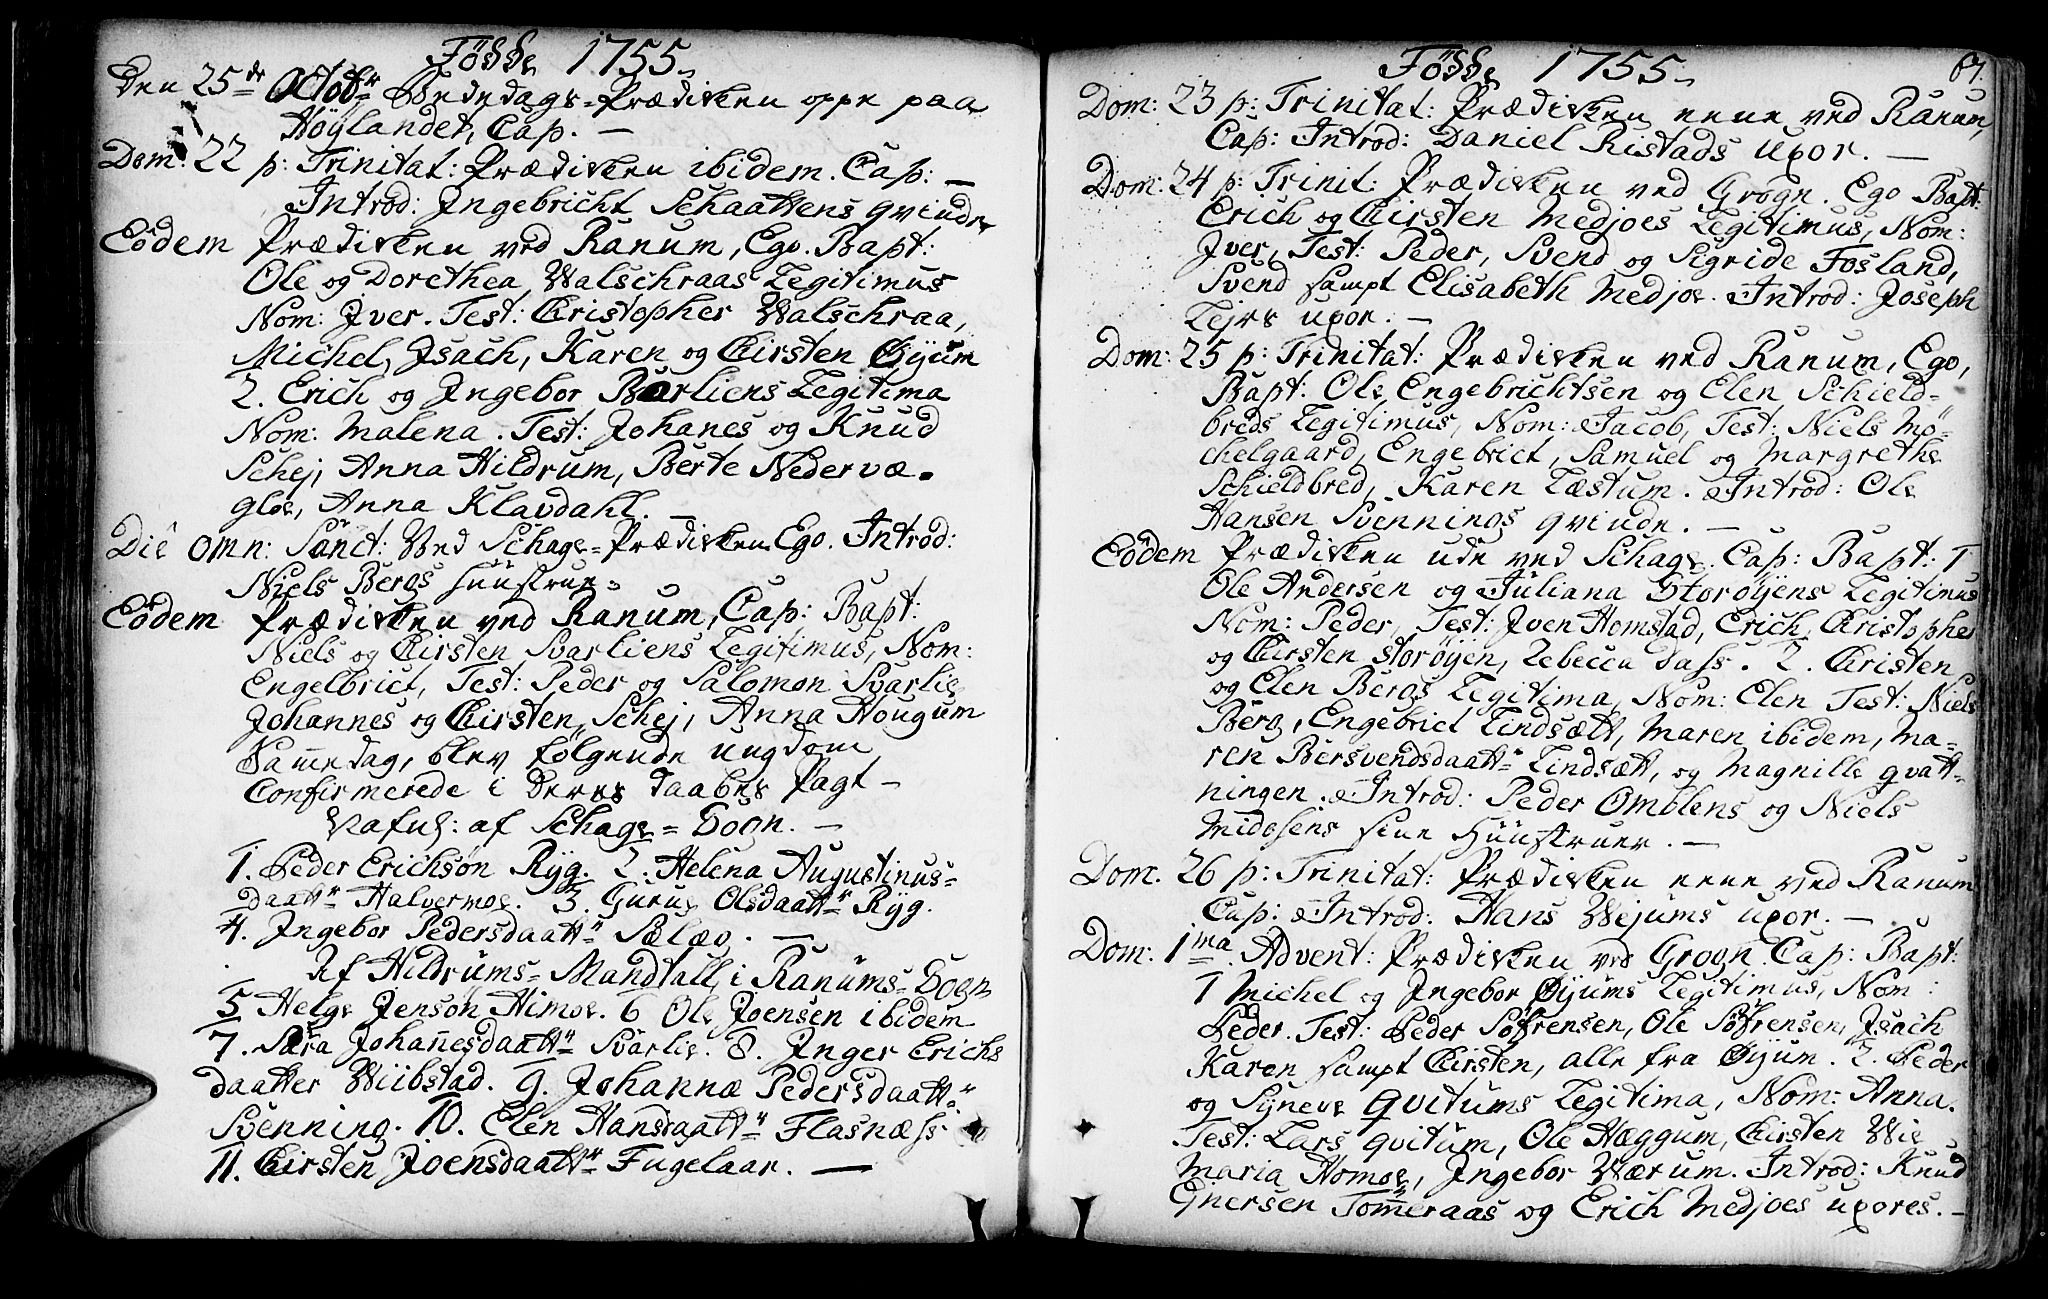 Födde 1755
Den 25de Octobr Bededags-Prædicken oppe paa
Höylandet, Cap. —
Dom: 22 p: Trinitat: Prædicken ibidem. Cap: —
Introd: Ingebricht Schaattens qvinde
Eödem Prædicken ved Ranum, Ego. Bapt:
Ole og Dorethea Walschraas Legitimus
Nom: Jver. Test: Christopher Walschraa,
Michel, Jsach, Karen og Chirsten Öyum
2. Erich og Jngebor Barliens Legitima
Nom: Malena. Test: Johanes og Knud
Schej, Anna Hildrum, Berte Nedervæ-
gloe, Anna Klavdahl. —
Die Omn: Sanct: Ved Schage-Prædicken Ego. Introd:
Niels Bergs Hüüstrue.
Eödem Prædicken ved Ranum, Cap: Bapt:
Niels og Chirsten Svarliens Legitimus, Nom:
Engelbrict, Test: Peder og Salomon Svarlie
Johannes og Chirsten Schej, Anna Hougum
Samedag, blev følgende ungdom
Confirmerede i Deres Daabes Pagt —
af Schage-Sogn. —
1. Peder Erichsön Ryg. 2. Helena Augustinus-
daattr Halvermoe. 3. Guru Olsdaattr Ryg.
4. Jngebor Pedersdaattr Sælæg. —
Af Hildrums-Mandtall i Ranums-Sogn
5 Helge Jensön Himoe. 6 Ole Joensen ibidem
7. Sara Johannesdaattr Svarlie. 8. Jnger Erichs
daatter Wiibstad. 9. Johannæ Pedersdaattr
Svenning. 10. Elen Hansdaattr Flasnæss
11. Chirsten Joensdaattr Fugelaar. —
Födde 1755 67.
Dom: 23 p: Trinitat: Prædicken nene ved Ranum,
Cap: Introd: Daniel Ristads uxor. —
Dom: 24 p: Trinit: Prædicken ved Grogn. Ego Bapt:
Erich og Chirsten Medjoes Legitimus, Nom:
Jver, Test: Peder, Svend og Sigride Fosland,
Svend sampt Elisabeth Medjoe. Introd: Joseph
Lejrs uxor. —
Dom: 25 p: Trinitat: Prædicken ved Ranum, Ego,
Bapt: Ole Engebrichtsen og Elen Schield-
breds Legitimus, Nom: Jacob, Test: Niels Mö-
chelgaard, Engebrict, Samuel og Margrethe
Schieldbred, Karen Læstum. Introd: Ole
Hansen Svennings qvinde. —
Eödem Prædicken ude ved Schage. Cap: Bapt: 1
Ole Andersen og Juliana Storöyens Legitimus
Nom: Peder, Test: Jven Homstad, Erich, Christopher
og Chirsten Storöyen, Rebecca Dass. 2. Christen
og Elen Bergs Legitima, Nom: Elen Test: Niels
Berg, Engebrict Lindsætt, Maren ibidem, Ma-
ren Bersvendsdaattr Lindsætt, og Magnille qvatt-
ningen. Introd: Peder Omblens og Niels
Midosens sine Hüüstruer. —
Dom. 26 p: Trinitat: Prædicken nene ved Ranum
Cap: Introd: Hans Wejums uxor. —
Dom: 1ma Advent: Prædicken ved Grogn. Cap: Bapt:
1 Michel og Jngebor Öyums Legitimus, Nom:
Peder. Test: Peder Söfrensen, Ole Söfrensen, Jsach
Karen sampt Chirsten, alle fra Öyum. 2. Peder
og Syneve Qvitums Legitima, Nom: Anna.
Test: Lars Qvitum, Ole Hæggum, Chirsten Wie
Maria Homoe, Jngebor Værum. Introd: Knud
Gnersen Tömeraas og Erich Medjoes uxores. —